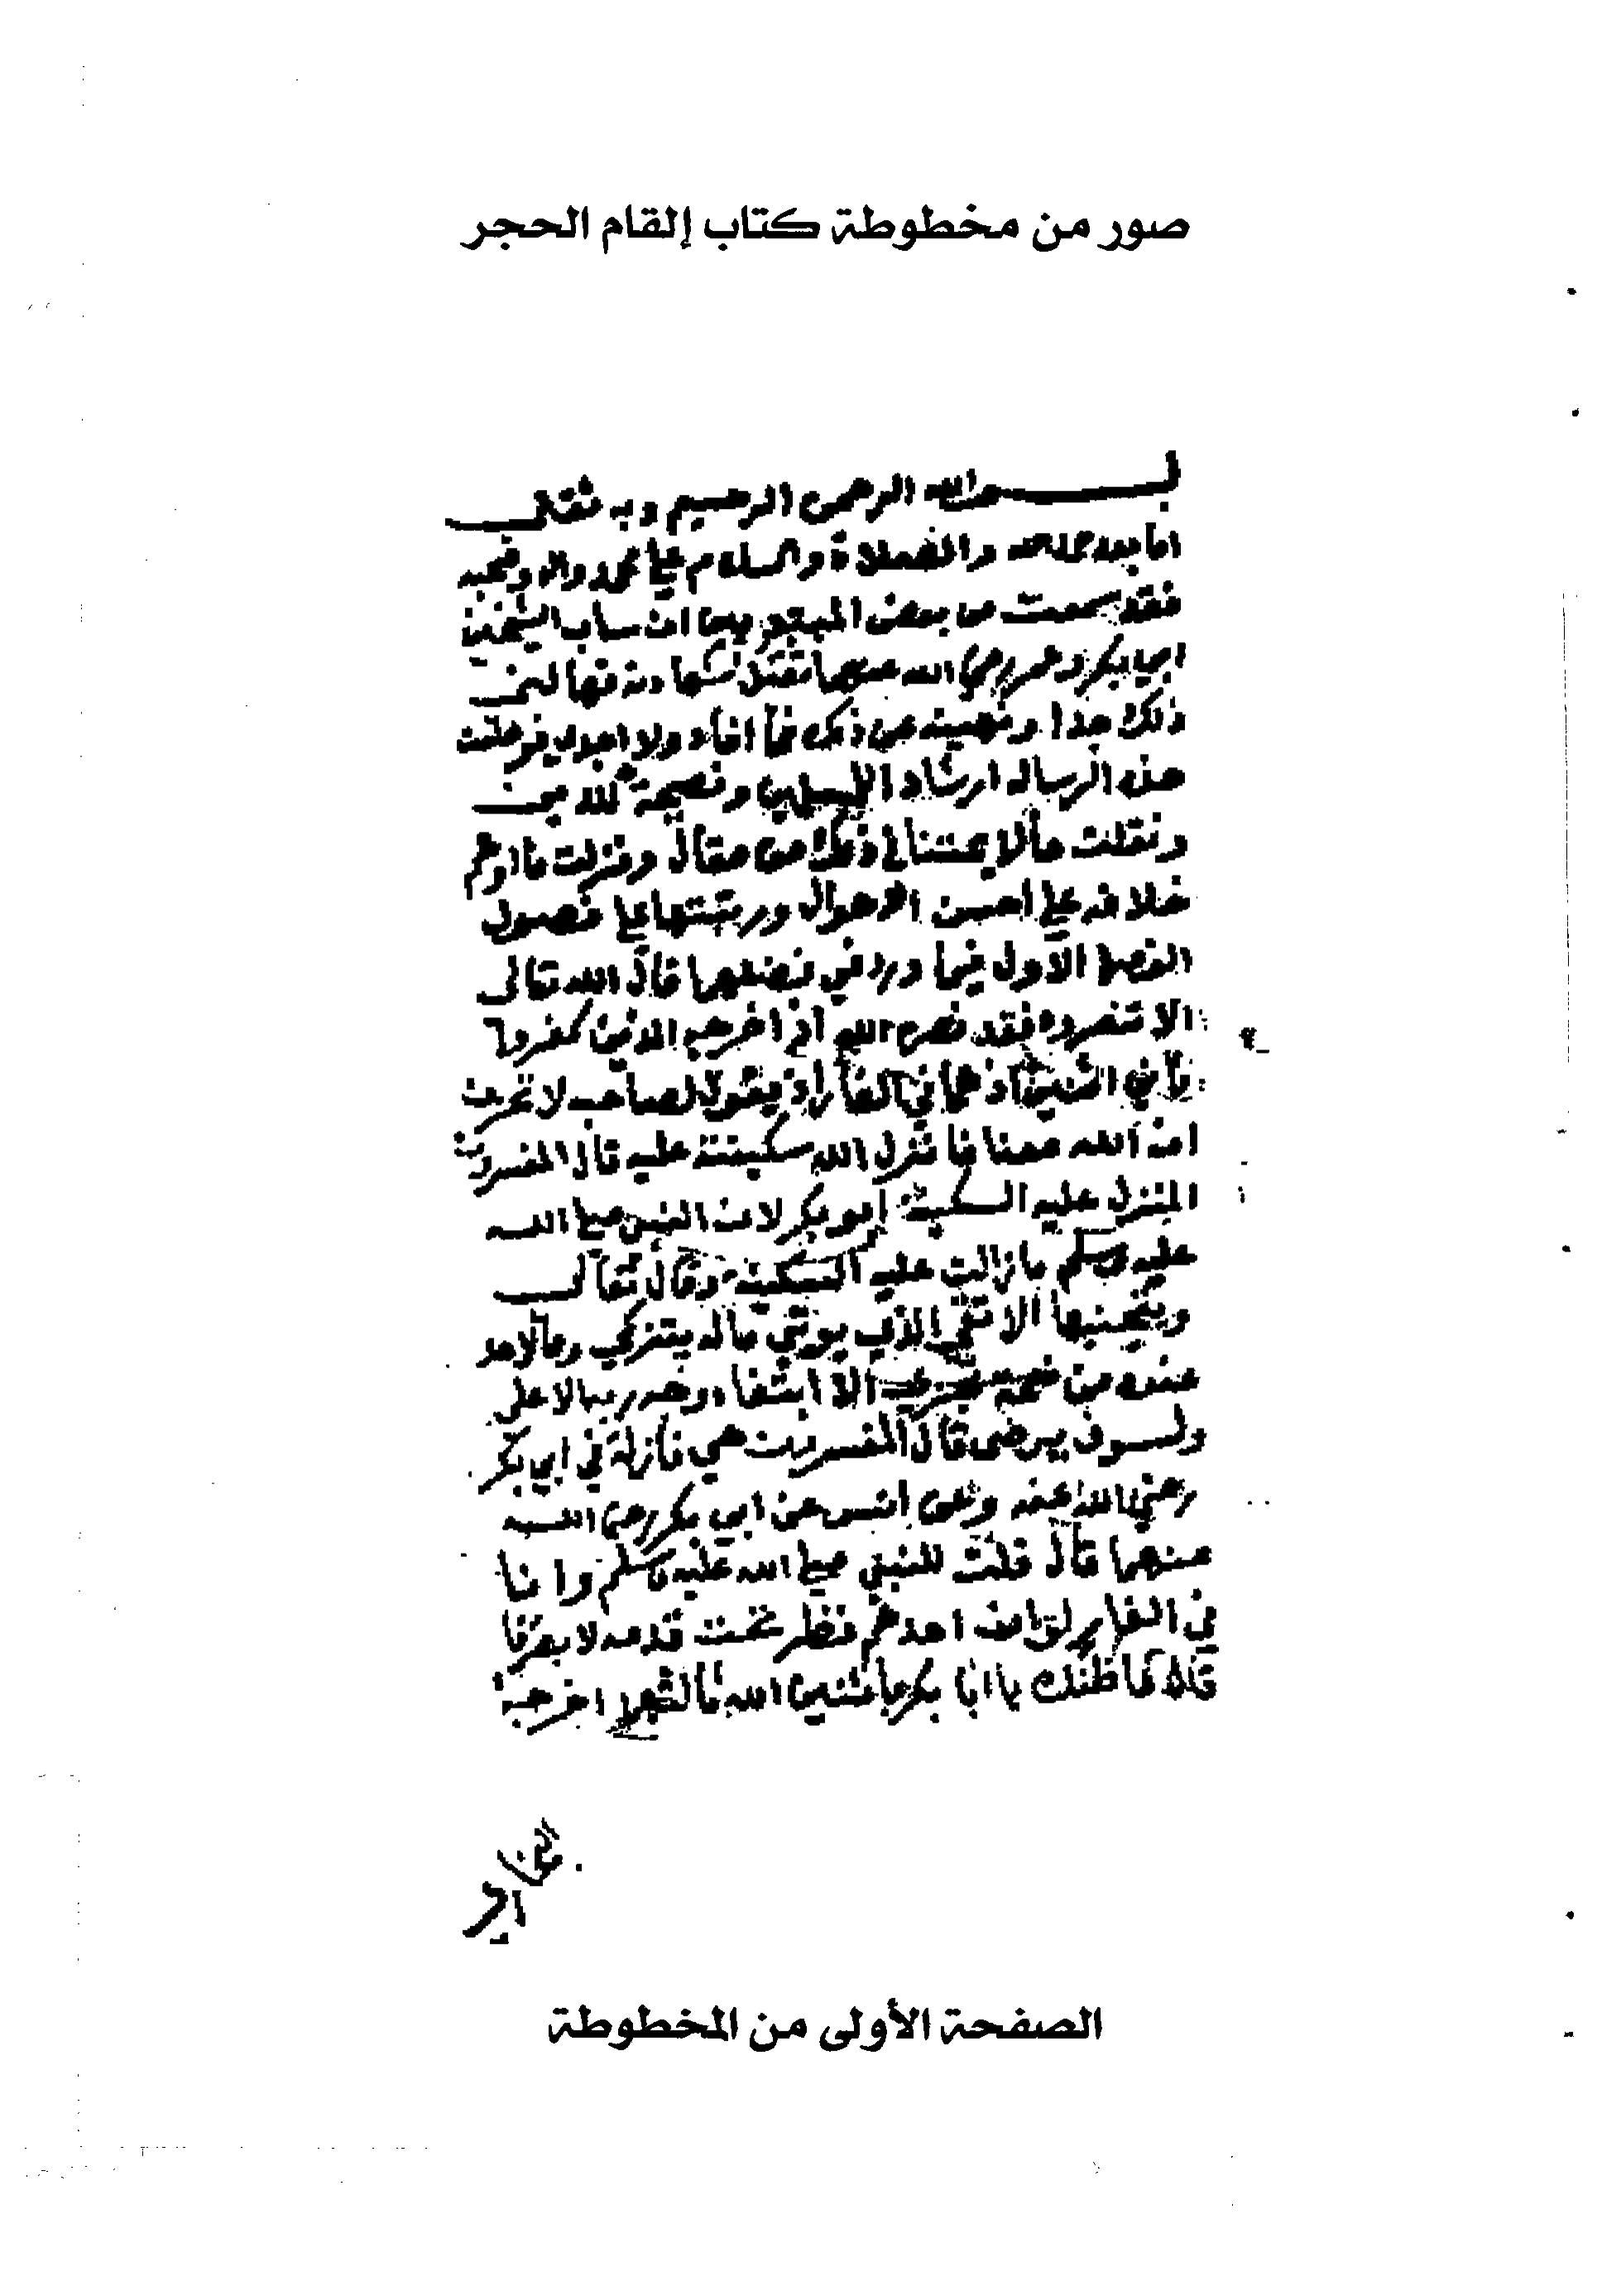 صور من مخطوطة كتاب إلقام الحجر
بسم الله الرحمن الرحيم وبه ثقتي
اما بعد حمد الله والصلاة والسلام على محمد واله وصحبه
فقد سمعت من بعض ان ساب الشيخين
ابي بكر وعمر رضي الله عنهما تقبل شهادته
ذلك جدا ونهيته عن ذلك فما افاد ولا اجدى فوضعت
هذه الرساله ارشادا للمسلمين ونصيحة للدين
ونقلت ما لائمتنا في ذلك من مقال ونزلت ما اوهم
خلافه على احسن الاحوال ورتبتها على فصول
الفصل الاول فيما ورد في فضلهما قال الله تعالى
الا تنصروه فقد نصره الله اذ اخرجه الذين كفروا
ثاني اثنين اذ هما في الغار اذ يقول لصاحبه لا تحزن
ان الله معنا فانزل الله سكينته عليه قال المفسرون
المنزل عليه السكينة ابو بكر لان النبي صلى الله
عليه وسلم ما زالت عليه السكينة وقال تعالى
وسيجنبها الاتقى الذي يوتي ماله يتزكى وما لاحد
عنده من نعمة تجزى الا ابتغاء وجه ربه الاعلى
ولسوف يرضى قال المفسرون هي نازلة في ابي بكر
رضي الله عنه وعن انس عن ابي بكر رضي الله
عنهما قال قلت للنبي صلى الله عليه وسلم وانا
في الغار لو ان احدهم نظر تحت قدمه لابصرنا
قال ما ظنك يا ابا بكر باثنين الله ثالثهما اخرجه
الصفحة الأولى من المخطوطة